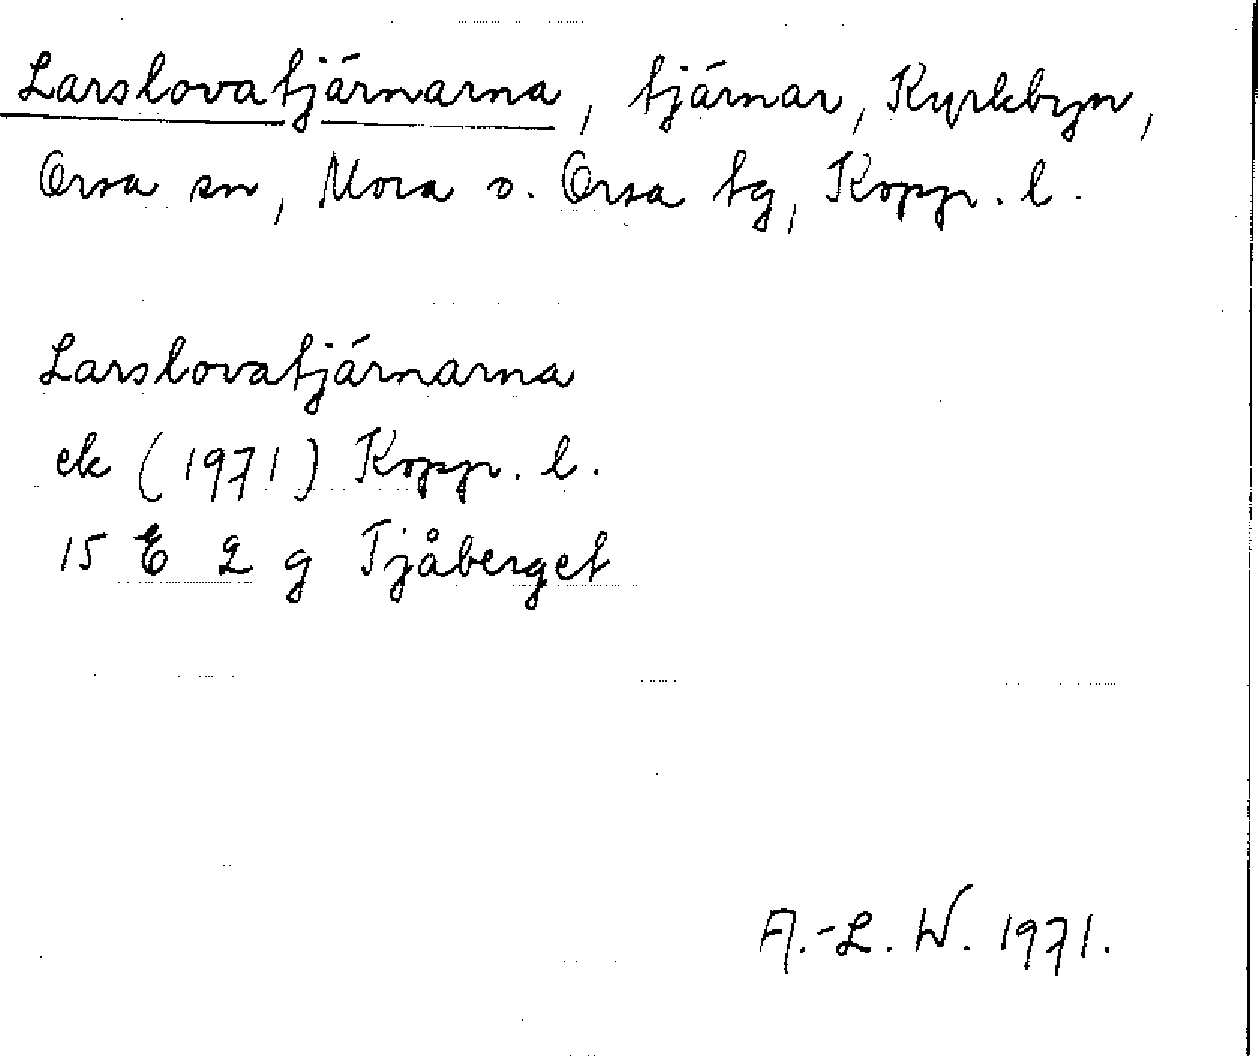 Larslovatjärnarna, tjärnar, Kyrkbyn,
Orsa sn, Mora o. Orsa tg, Kopp. l.
Larslovatjärnarna
ek (1971) Kopp. l.
15 E 2 g Tjåberget
A.-L. W. 1971.